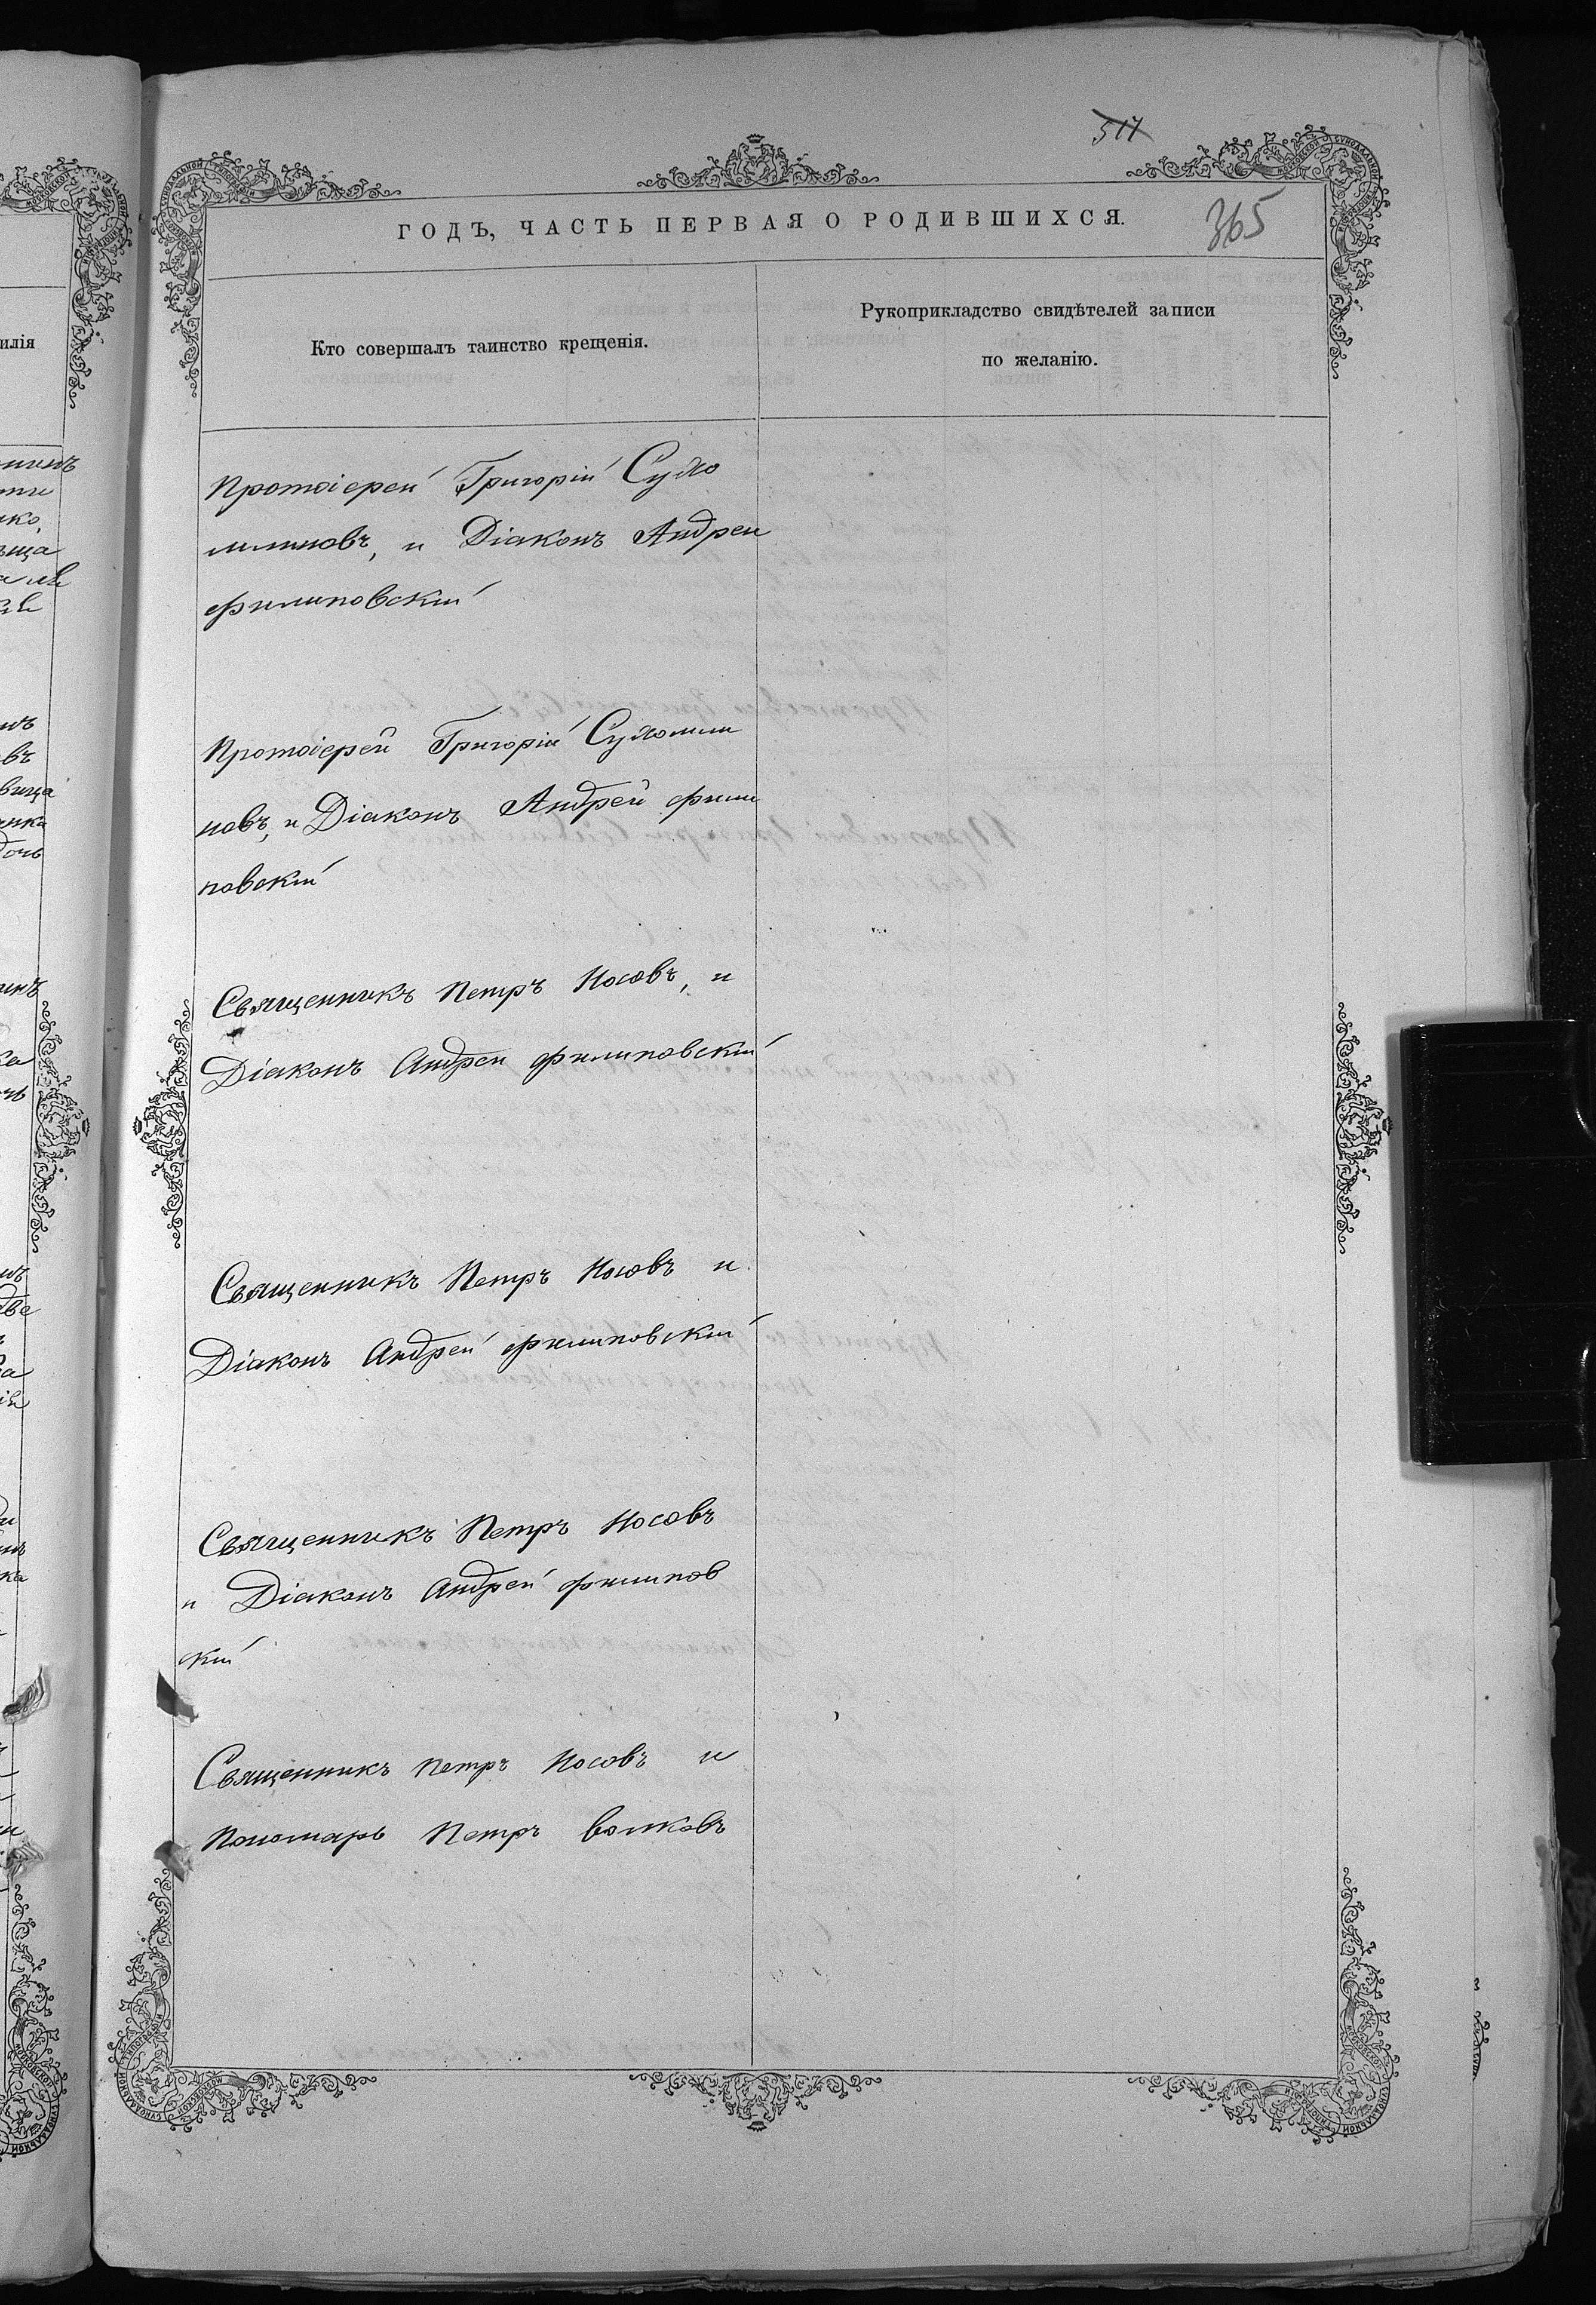 517
365
ГОДЪ, ЧАСТЬ ПЕРВАЯ О РОДИВШИХСЯ.
Кто совершалъ таинство крещенія.
Рукоприкладство свидѣтелей записи
по желанію.
Протоіерей Григорій Сухо
млиновъ, и Діаконъ Андрей
Филиповскій
Протоіерей Григорій Сухомли
новъ, и Діаконъ Андрей Фили
повскій
Священникъ Петръ Носовъ, и
Діаконъ Андрей Филиповскій
Священникъ Петръ Носовъ и
Діаконъ Андрей Филиповскій
Священникъ Петръ Носовъ
и Діаконъ Андрей Филипов
кій
Священникъ Петръ Носовъ и
Пономарь Петръ Волковъ